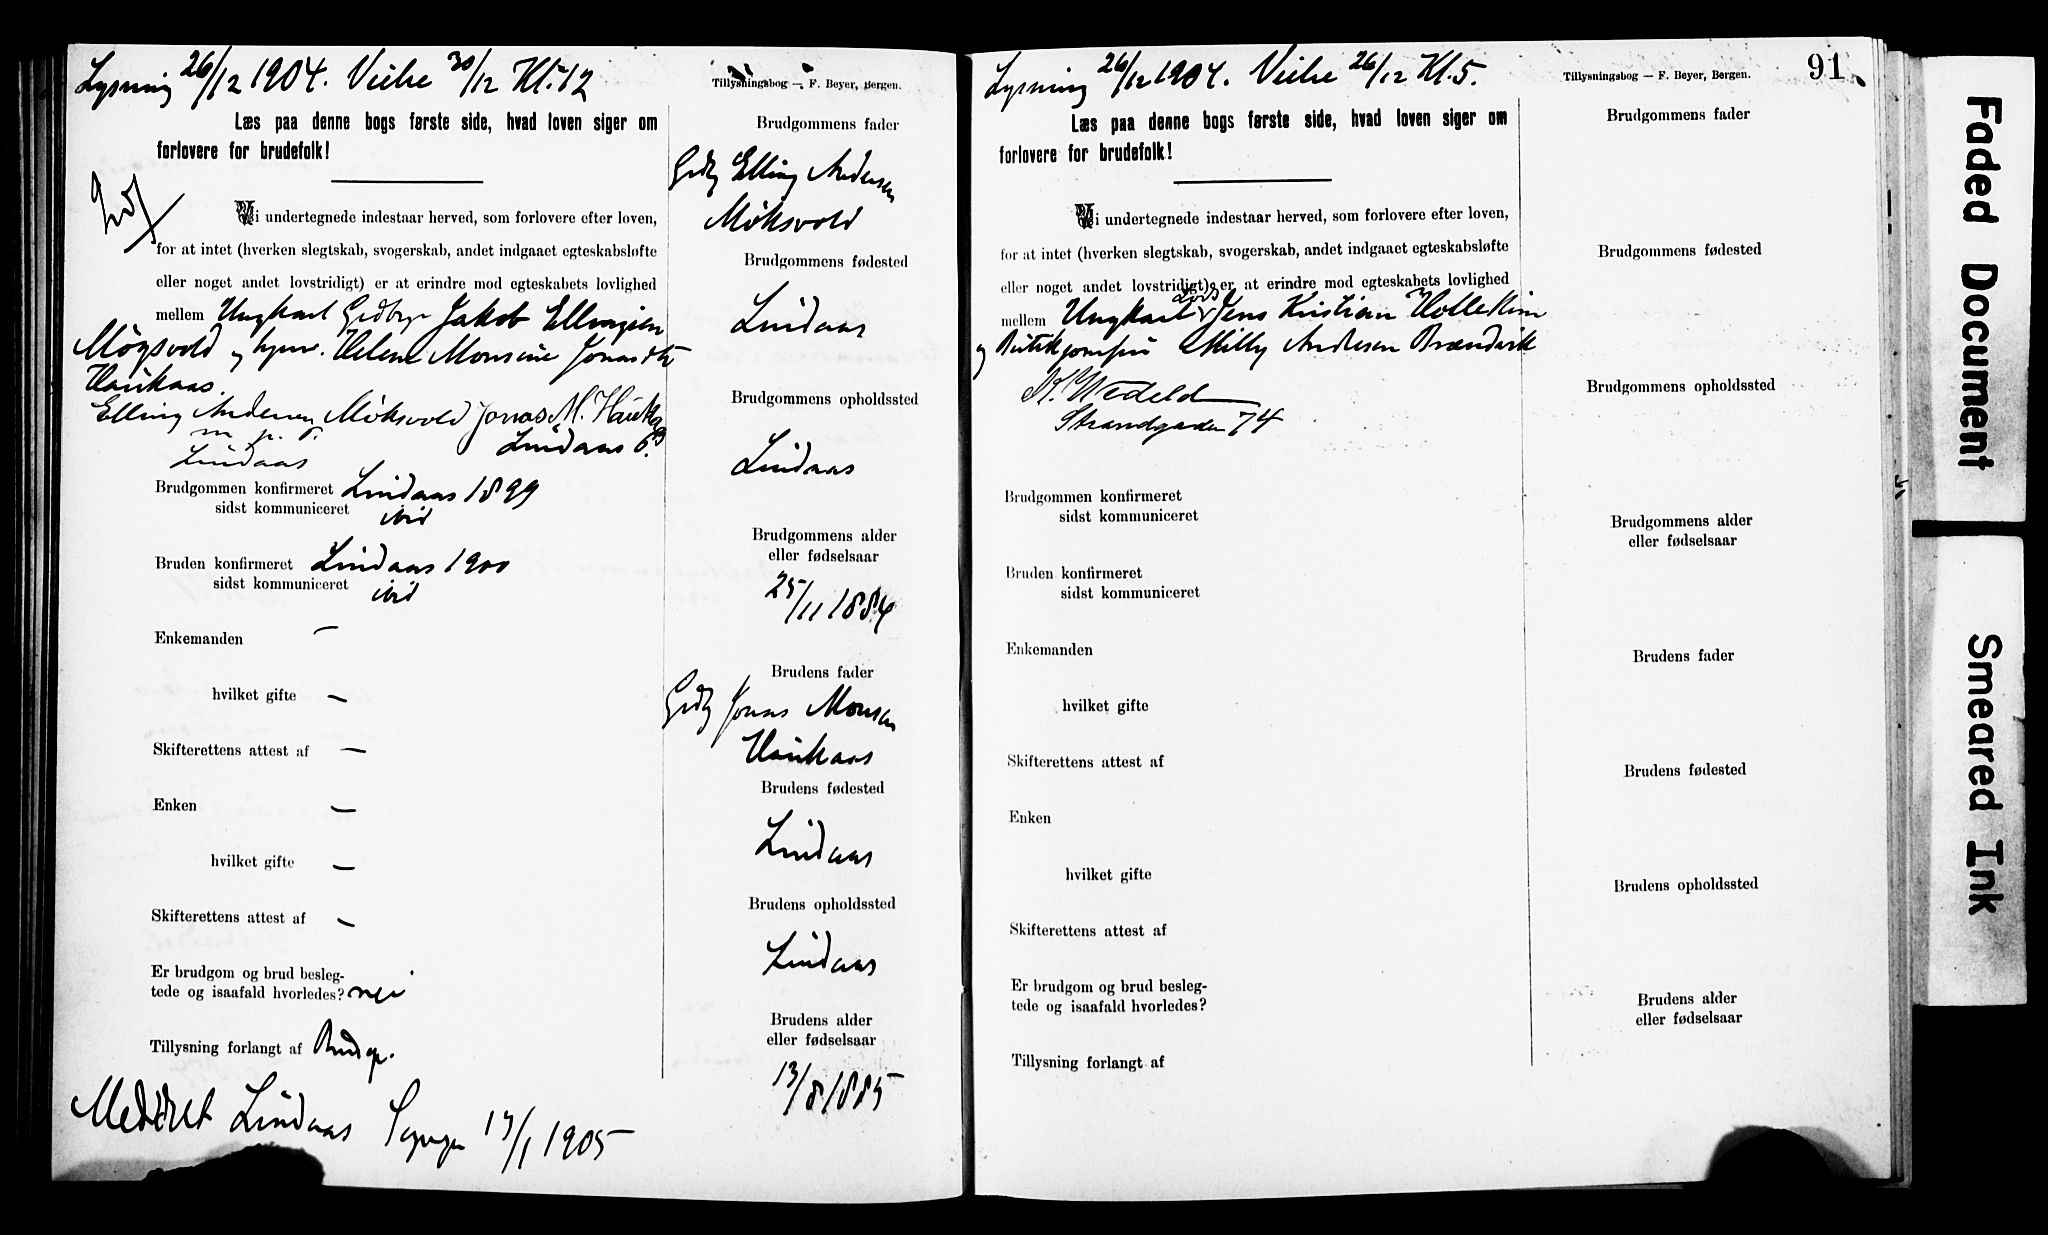 Lysning 26/12 1904. Vielse 30/12 Kl. 12
Tillysningsbog — F. Beyer, Bergen.
Læs paa denne bogs første side, hvad loven siger om
forlovere for brudefolk!
Vi undertegnede indestaar herved, som forlovere efter loven,
for at intet (hverken slegtskab, svogerskab, andet indgaaet egteskabsløfte
eller noget andet lovstridigt) er at erindre mod egteskabets lovlighed
mellem Ungkarl Jakob
og Helene Monsine
Haukaas.
Elling Andersen Møksvold Jonas M. Haukaas
Lindaas
Lindaas
Brudgommen konfirmeret Lindaas 1899
sidst kommuniceret ibid
Bruden konfirmeret Lindaas 1900
sidst kommuniceret ibid
Enkemanden —
hvilket gifte —
Skifterettens attest af —
Enken —
hvilket gifte —
Skifterettens attest af —
Er brudgom og brud besleg-
tede og isaafald hvorledes? nei
Tillysning forlangt af Brudg.
Meddelt Lindaas 1905
Brudgommens fader
Gdbr Elling Andersen
Møksvold
Brudgommens fødested
Lindaas
Brudgommens opholdssted
Lindaas
Brudgommens alder
eller fødselsaar
25/11 1884
Brudens fader
Gdbr Jonas Monsen
Haukaas
Brudens fødested
Lindaas
Brudens opholdssted
Lindaas
Brudens alder
eller fødselsaar
13/8 1885
Lysning 26/12 1904. Vielse 26/12 Kl. 5.
Tillysningsbog — F. Beyer, Bergen.
91
Læs paa denne bogs første side, hvad loven siger om
forlovere for brudefolk!
Vi undertegnede indestaar herved, som forlovere efter loven,
for at intet (hverken slegtskab, svogerskab, andet indgaaet egteskabsløfte
eller noget andet lovstridigt) er at erindre mod egteskabets lovlighed
mellem Ungkarl Jens Kristian
og Milly Andrea
Strandgaden 74
Brudgommen konfirmeret
sidst kommuniceret
Bruden konfirmeret
sidst kommuniceret
Enkemanden
hvilket gifte
Skifterettens attest af
Enken
hvilket gifte
Skifterettens attest af
Er brudgom og brud besleg-
tede og isaafald hvorledes?
Tillysning forlangt af
Brudgommens fader
Brudgommens fødested
Brudgommens opholdssted
Brudgommens alder
eller fødselsaar
Brudens fader
Brudens fødested
Brudens opholdssted
Brudens alder
eller fødselsaar
Faded Document
Smeared Ink